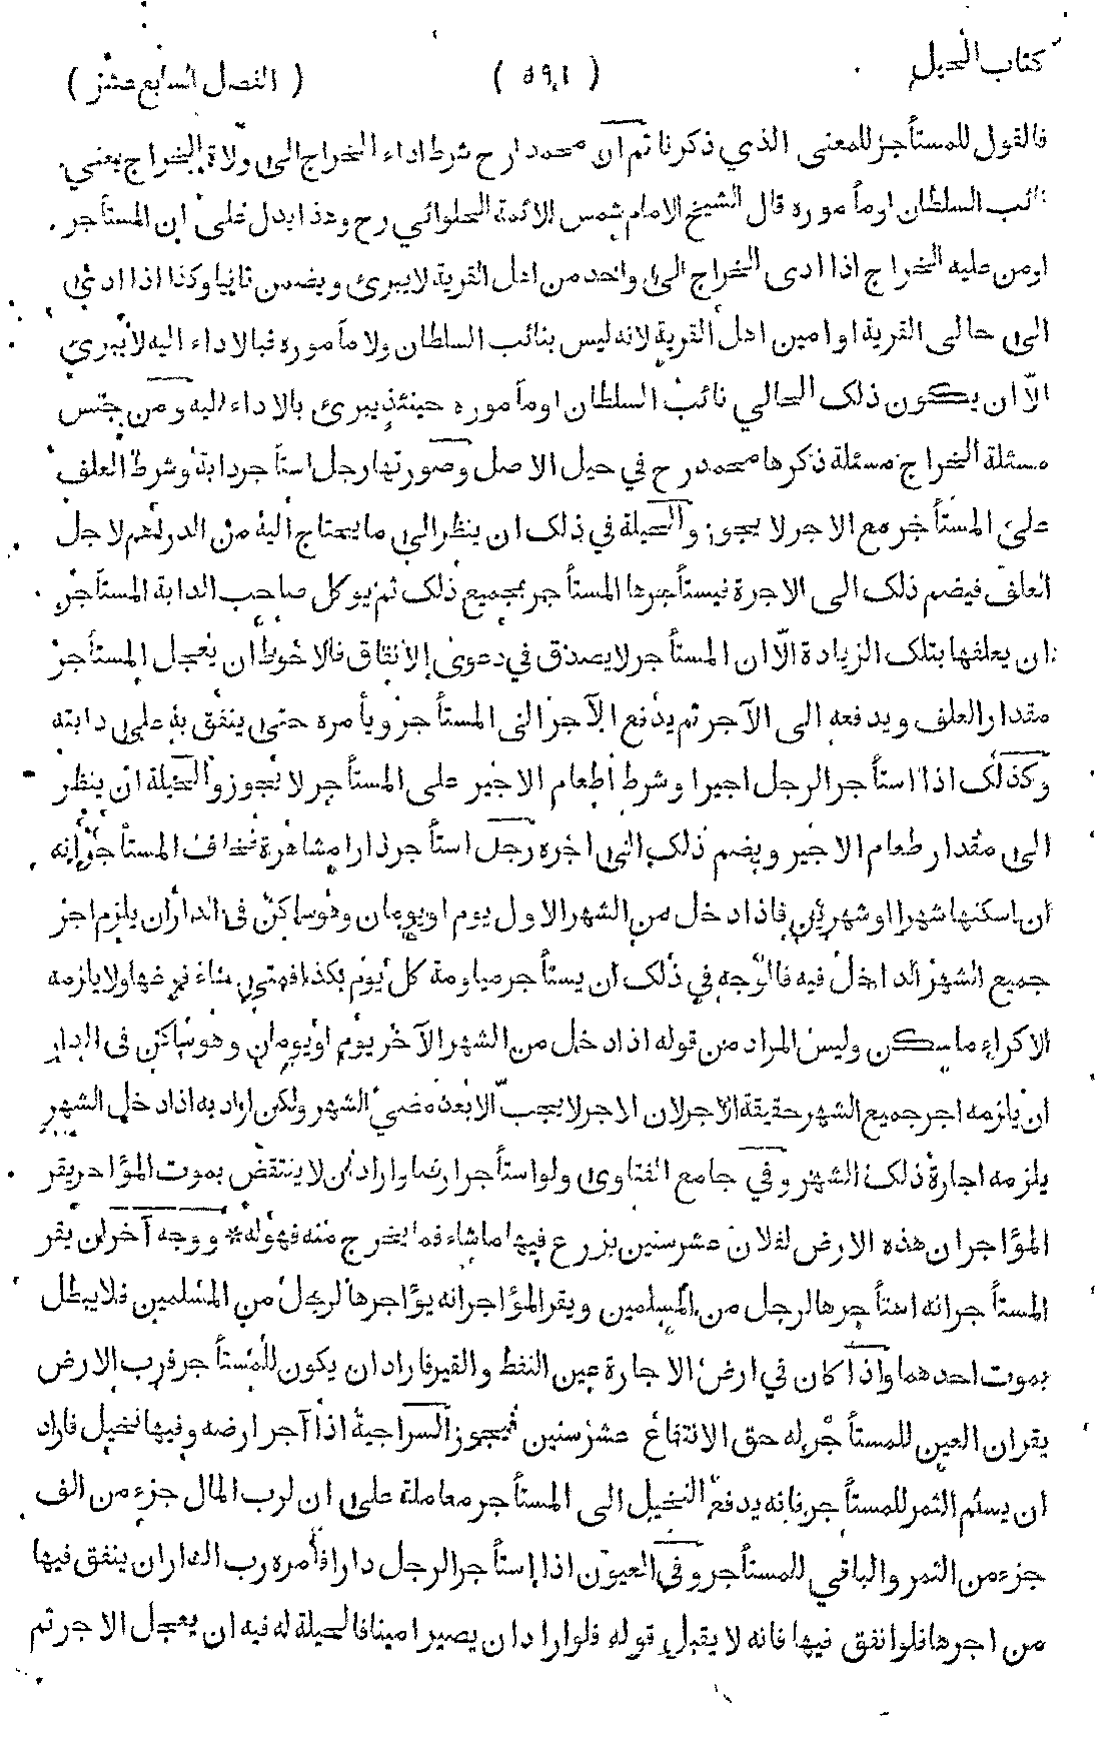 كتاب الحيل ( ٥٩١ ) ( الفصل السابع عشر )
فالقول للمستأجر للمعنى الذي ذكرنا ثم ان محمدا رح شرط اداء الخراج الى ولاة الخراج يعني
نائب السلطان او مأموره قال الشيخ الامام شمس الائمة الحلوائي رح وهذا يدل على ان المستأجر
او من عليه الخراج اذا ادى الخراج الى واحد من اهل القرية لا يبرئ ويضمن ثانيا وكذا اذا ادى
الى حالى القرية او امين اهل القرية لانه ليس بنائب السلطان ولا مأموره فبالاداء اليه لا يبرئ
الّا ان يكون ذلك الحالي نائب السلطان او مأموره حينئذ يبرئ بالاداء اليه ومن جنس
مسئلة الخراج مسئلة ذكرها محمد رح في حيل الاصل وصورتها رجل استأجر دابة وشرط العلف
على المستأجر مع الاجر لا يجوز والحيلة في ذلك ان ينظر الى ما يحتاج اليه من الدرهم لاجل
العلف فيضم ذلك الى الاجرة فيستأجرها المستأجر بجميع ذلك ثم يوكل صاحب الدابة المستأجر
ان يعلفها بتلك الزيادة الّا ان المستأجر لا يصدق في دعوى الانفاق فالاحوط ان يعجل المستأجر
مقدار العلف ويدفعه الى الآجر ثم يدفع الآجر الى المستأجر ويأمره حتى ينفق به على دابته
وكذلك اذا استأجر الرجل اجيرا وشرط اطعام الاجير على المستأجر لا يجوز والحيلة ان ينظر
الى مقدار طعام الاجير ويضم ذلك الى اجره رجل استأجر دارا مشاهرة فخاف المستأجر انه
ان اسكنها شهرا او شهرين فاذا دخل من الشهر الاول يوم او يومان وهو ساكن في الدار ان يلزم اجر
جميع الشهر الداخل فيه فالوجه في ذلك ان يستأجر مياومة كل يوم بكذا فمتى شاء فرغها ولا يلزمه
الا كراء ما سكن وليس المراد من قوله اذا دخل من الشهر الآخر يوم او يومان وهو ساكن في الدار
ان يلزمه اجر جميع الشهر حقيقة الاجر لان الاجر لا يجب الا بعد مضي الشهر ولكن اراد به اذا دخل الشهر
يلزمه اجارة ذلك الشهر وفي جامع الفتاوى ولو استأجر ارضا واراد ان لا ينتقض بموت المؤاجر يقر
المؤاجر ان هذه الارض لفلان عشر سنين يزرع فيها ما شاء فما يخرج منه فهو له * ووجه آخر ان يقر
المستأجر انه استأجرها لرجل من المسلمين ويقر المؤاجر انه يؤاجرها لرجل من المسلمين فلا يبطل
بموت احدهما واذا كان في ارض الاجارة عين النفط والقير فاراد ان يكون للمستأجر فرب الارض
يقر ان العين للمستأجر له حق الانتفاع عشر سنين فيجوز السراجية اذا آجر ارضه وفيها نخيل فاراد
ان يسلم الثمر للمستأجر فانه يدفع النخيل الى المستأجر معاملة على ان لرب المال جزء من الف
جزء من الثمر والباقي للمستأجر وفي العيون اذا استأجر الرجل دارا فأمره رب الدار ان ينفق فيها
من اجرها فلو انفق فيها فانه لا يقبل قوله فلو اراد ان يصير امينا فالحيلة له فيه ان يعجل الاجر ثم